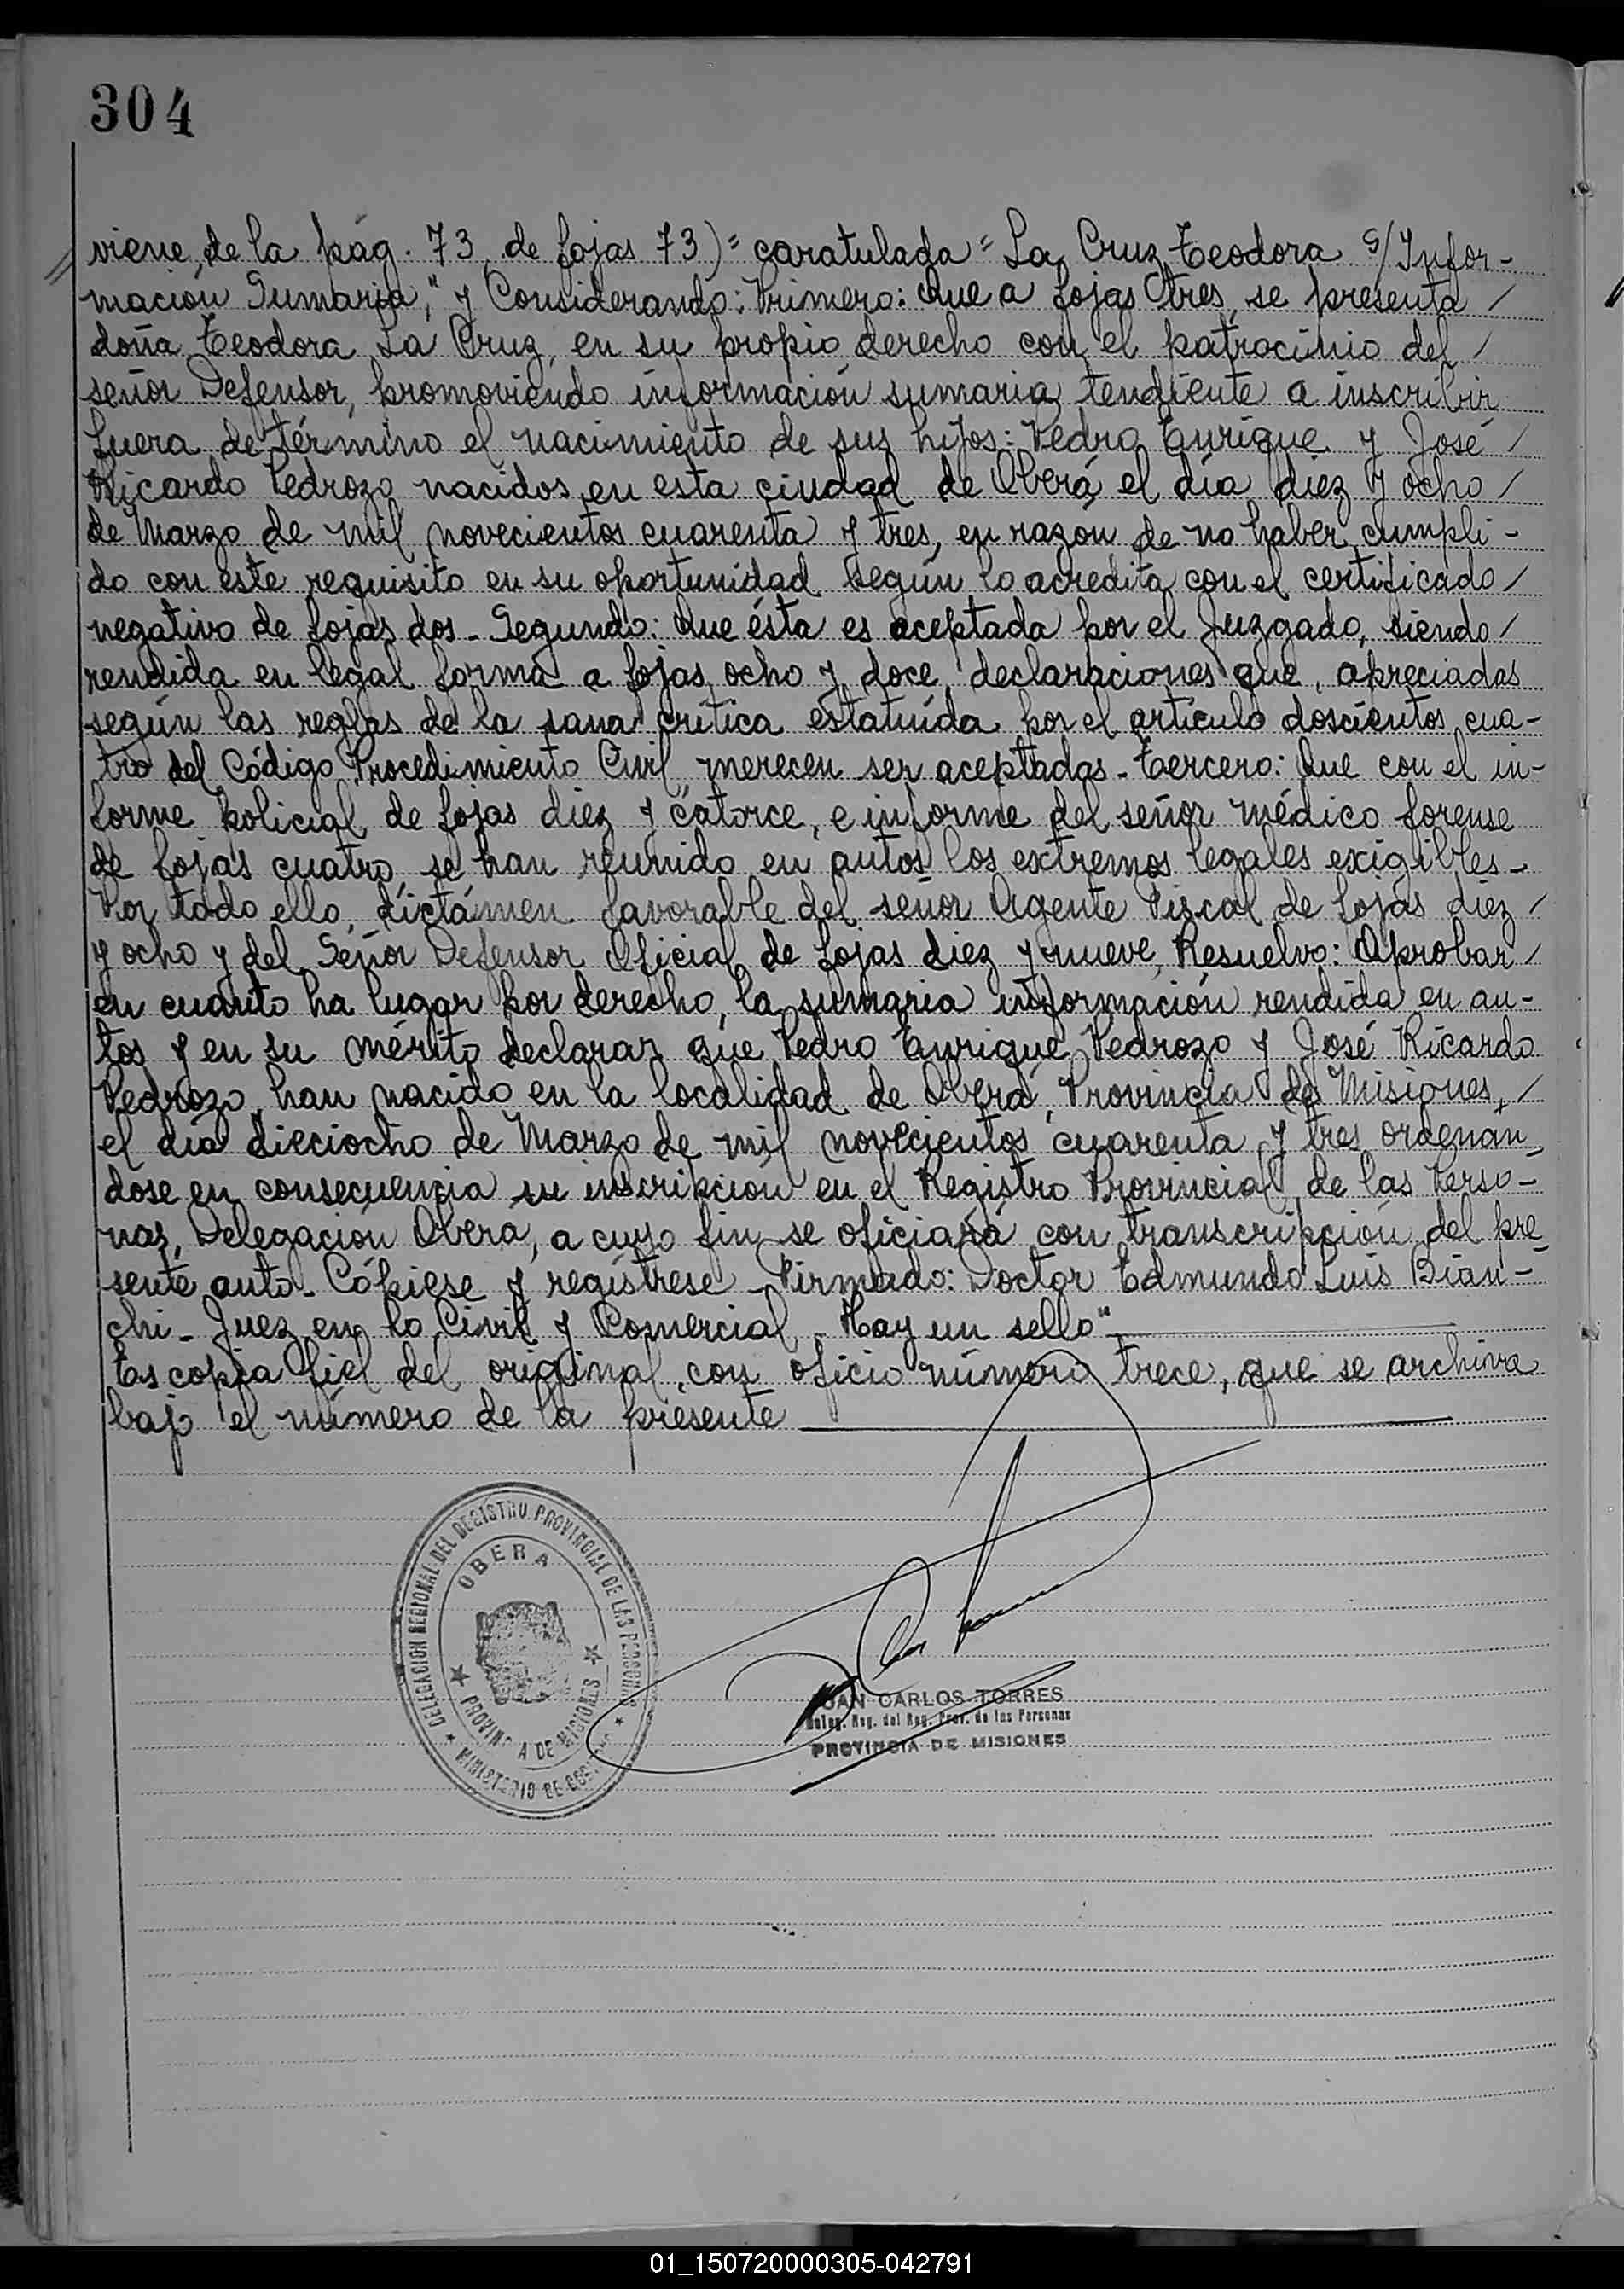 304
viene de la pág. 73, de fojas 73) = caratulada = La Cruz Teodora S/ Infor-
mación Sumaria," y Considerando: Primero: Que a fojas tres, se presenta /
doña Teodora La Cruz, en su propio derecho con el patrocinio del /
señor Defensor, promoviendo información sumaria tendiente a inscribir
fuera de término el nacimiento de sus hijos: Pedro Enrique y José /
Ricardo Pedrozo nacidos en esta ciudad de Oberá el día diez y ocho /
de Marzo de mil novecientos cuarenta y tres, en razón de no haber cumpli-
do con este requisito en su oportunidad según lo acredita con el certificado /
negativo de fojas dos - Segundo: Que ésta es aceptada por el Juzgado, siendo /
rendida en legal forma a fojas ocho y doce, declaraciones que, apreciadas
según las reglas de la sana crítica estatuída por el artículo doscientos cua-
tro del Código Procedimiento Civil merecen ser aceptadas - Tercero: Que con el in-
forme policial de fojas diez y catorce, e informe del señor médico forense
de fojas cuatro, se han reunido en autos los extremos legales exigibles -
Por todo ello, dictámen favorable del señor Agente Fiscal de fojas diez /
y ocho y del Señor Defensor Oficial de fojas diez y nueve, Resuelvo: Aprobar /
en cuanto ha lugar por derecho, la sumaria información rendida en au-
tos y en su mérito declarar que Pedro Enrique Pedrozo y José Ricardo
Pedrozo, han nacido en la localidad de Oberá, Provincia de Misiones, /
el día dieciocho de Marzo de mil novecientos cuarenta y tres ordenan-
dose en consecuencia su inscripción en el Registro Provincial de las Perso-
nas, Delegación Oberá, a cuyo fin se oficiará con transcripción del pre-
sente auto - Cópiese y regístrese - Firmado: Doctor Edmundo Luis Bian-
chi - Juez en lo Civil y Comercial - Hay un sello" -
Es copia fiel del original, con oficio número trece, que se archiva
bajo el número de la presente
DELEGACION REGIONAL DEL REGISTRO PROVINCIAL DE LAS PERSONAS
OBERA
PROVINCIA DE MISIONES
MINISTERIO DE GOBIERNO
JUAN CARLOS TORRES
Deleg. Reg. del Reg. Prov. de las Personas
PROVINCIA DE MISIONES
01_150720000305-042791